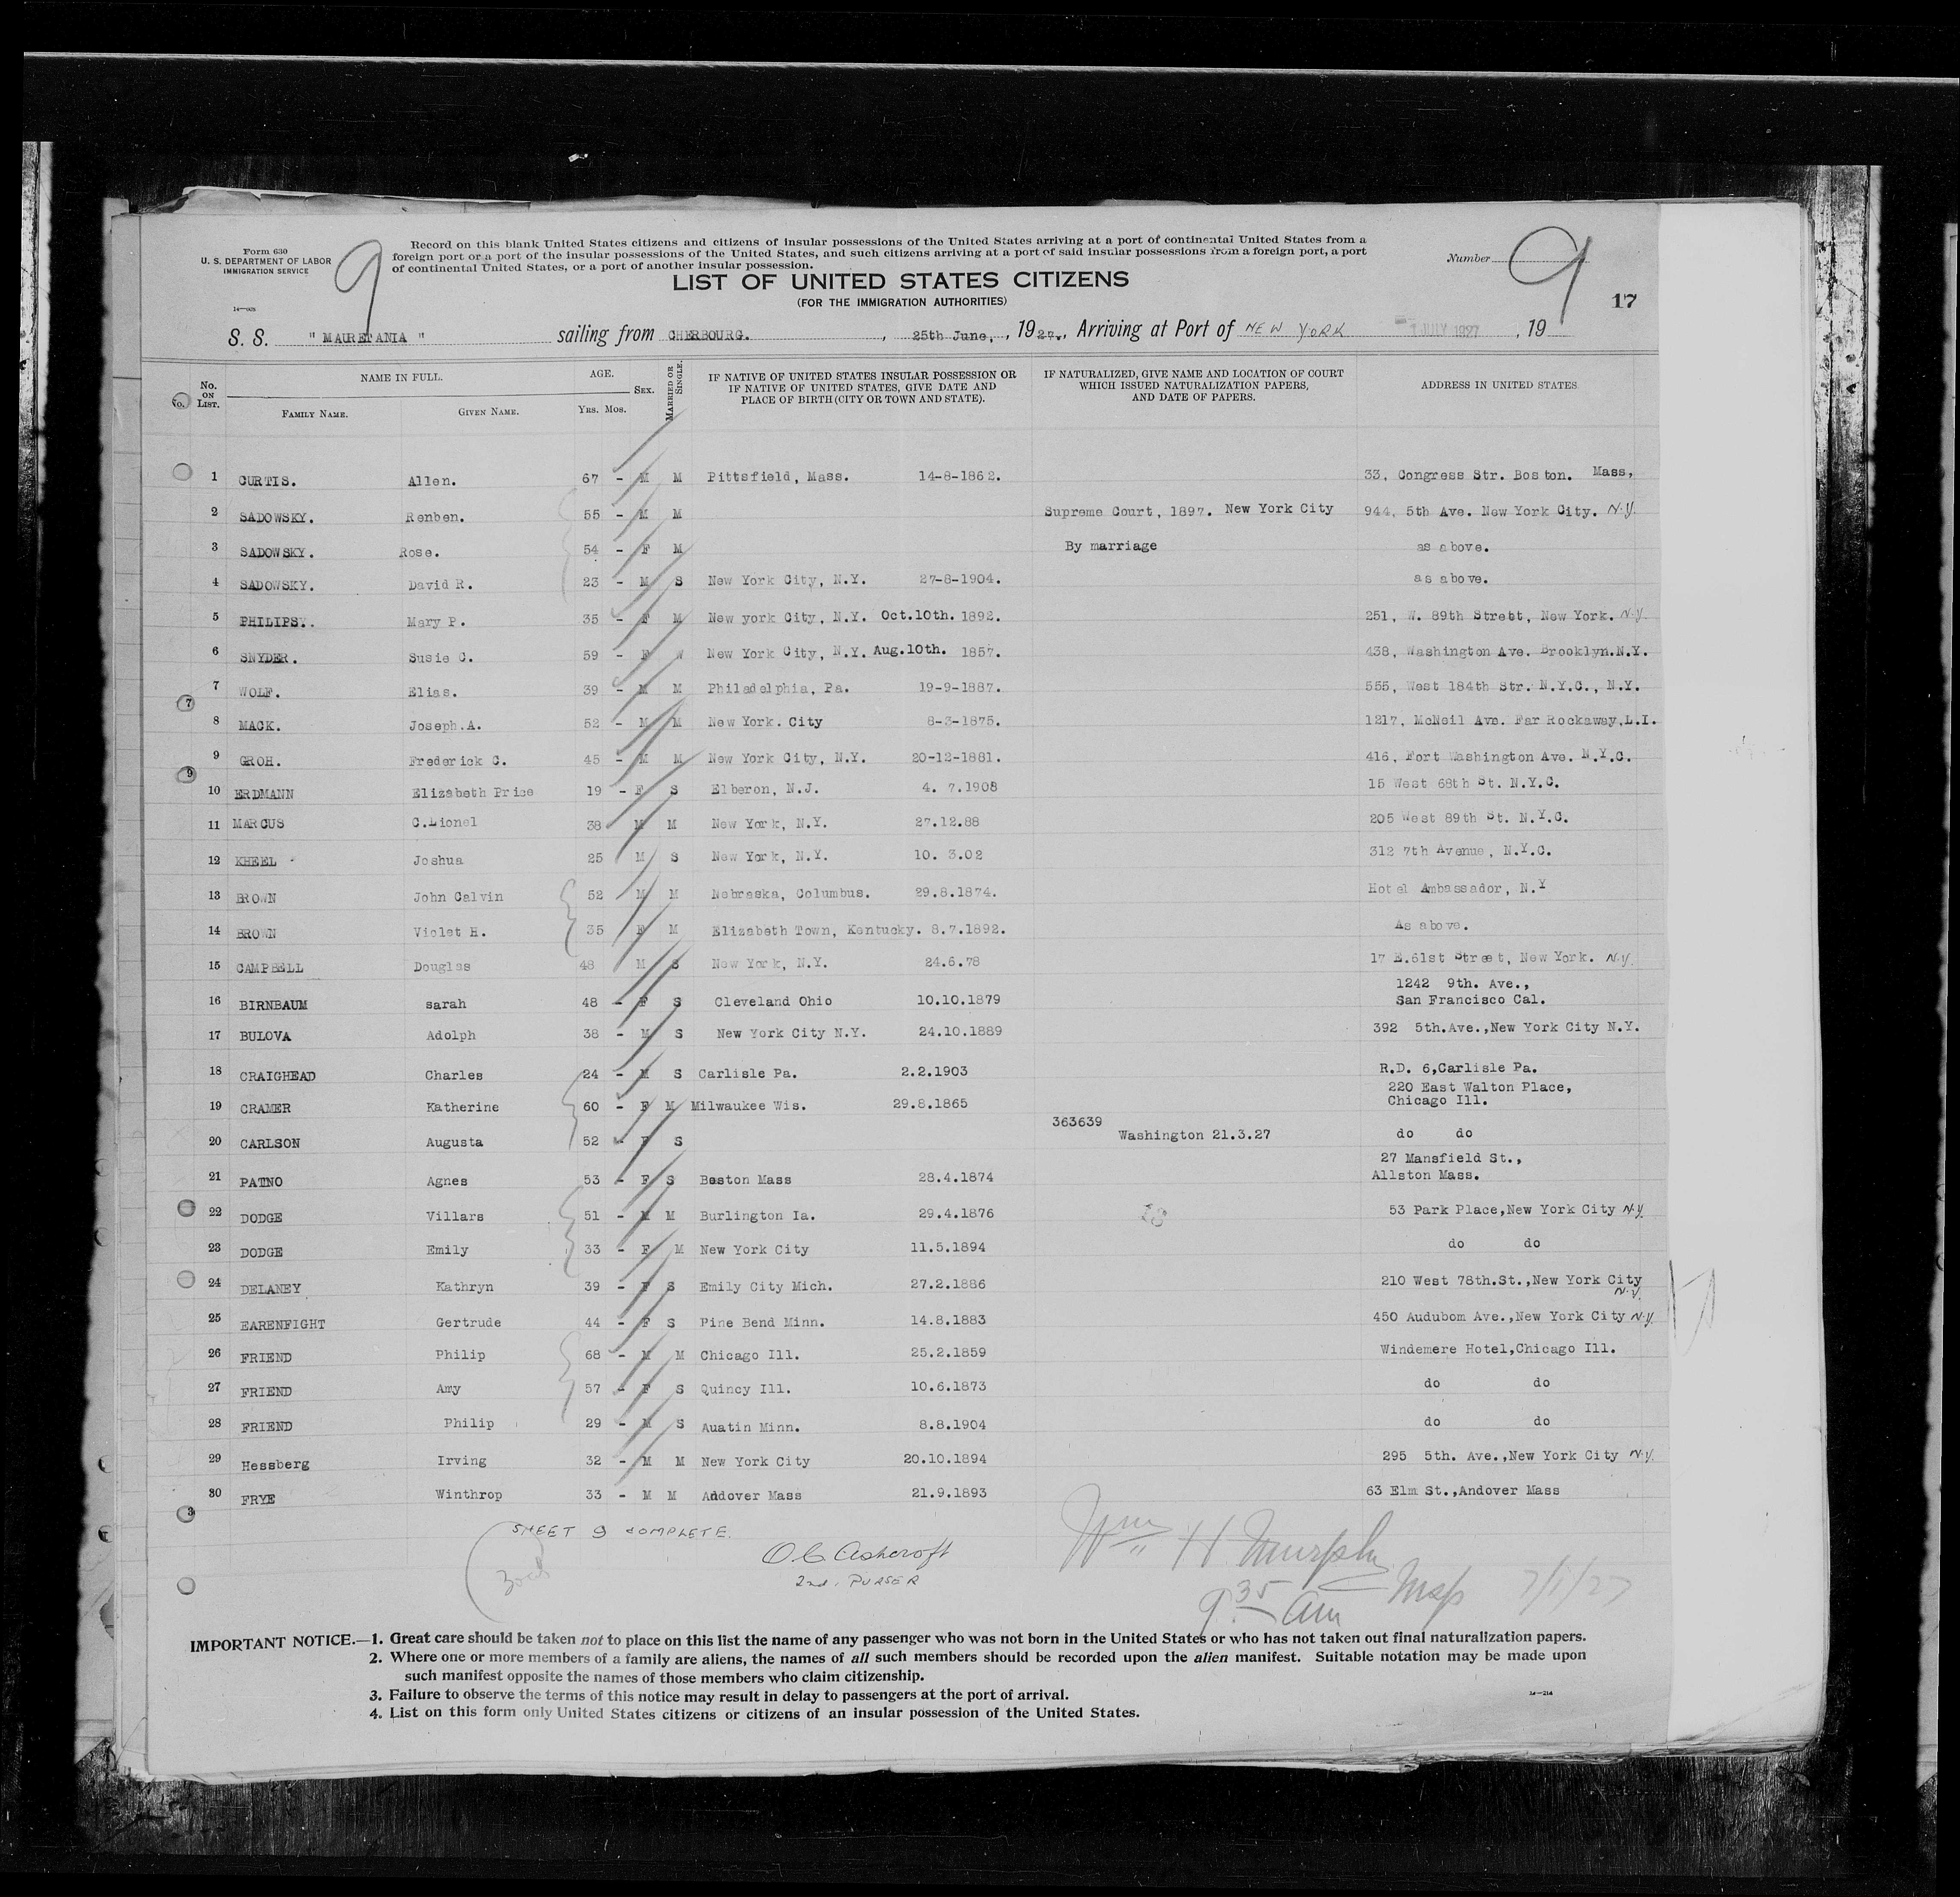 Form 630
U. S. DEPARTMENT OF LABOR
IMMIGRATION SERVICE
9
Record on this blank United States citizens and citizens of insular possessions of the United States arriving at a port of continental United States from a
foreign port or a port of the insular possessions of the United States, and such citizens arriving at a port of said insular possessions from a foreign port, a port
of continental United States, or a port of another insular possession.
Number 9
17
LIST OF UNITED STATES CITIZENS
(FOR THE IMMIGRATION AUTHORITIES)
S. S. " MAURETANIA " sailing from CHERBOURG. , 25th June, , 1927., Arriving at Port of NEW YORK 1 JULY 1927 , 19
No. No. ON LIST. NAME IN FULL. FAMILY NAME. GIVEN NAME. AGE. YRS. MOS. SEX. MARRIED OR SINGLE. IF NATIVE OF UNITED STATES INSULAR POSSESSION OR IF NATIVE OF UNITED STATES, GIVE DATE AND PLACE OF BIRTH (CITY OR TOWN AND STATE). IF NATURALIZED, GIVE NAME AND LOCATION OF COURT WHICH ISSUED NATURALIZATION PAPERS, AND DATE OF PAPERS. ADDRESS IN UNITED STATES
1 CURTIS. Allen. 67 - M M Pittsfield, Mass. 14-8-1862. 33, Congress Str. Boston. Mass,
2 SADOWSKY. Renben. 55 - M M Supreme Court, 1897. New York City 944, 5th Ave. New York City. N.Y.
3 SADOWSKY. Rose. 54 - F M By marriage as above.
4 SADOWSKY. David R. 23 - M S New York City, N.Y. 27-8-1904. as above.
5 PHILIPS.. Mary P. 35 - F M New york City, N.Y. Oct.10th. 1892. 251, W. 89th Street, New York. N.Y.
6 SNYDER. Susie C. 59 - F W New York City, N.Y. Aug.10th. 1857. 438, Washington Ave. Brooklyn.N.Y.
7 WOLF. Elias. 39 - M M Philadelphia, Pa. 19-9-1887. 555, West 184th Str. N.Y.C., N.Y.
8 MACK. Joseph.A. 52 - M M New York. City 8-3-1875. 1217, McNeil Ave. Far Rockaway,L.I.
9 GROH. Frederick C. 45 - M M New York City, N.Y. 20-12-1881. 416, Fort Washington Ave. N.Y.C.
10 ERDMANN Elizabeth Price 19 - F S Elberon, N.J. 4. 7.1908 15 West 68th St. N.Y.C.
11 MARCUS C.Lionel 38 M M New York, N.Y. 27.12.88 205 West 89th St. N.Y.C.
12 KHEEL Joshua 25 M S New York, N.Y. 10. 3.02 312 7th Avenue, N.Y.C.
13 BROWN John Calvin 52 M M Nebraska, Columbus. 29.8.1874. Hotel Ambassador, N.Y
14 BROWN Violet H. 35 F M Elizabeth Town, Kentucky. 8.7.1892. As above.
15 CAMPBELL Douglas 48 M S New York, N.Y. 24.6.78 17 E.61st Street, New York. N.Y.
16 BIRNBAUM sarah 48 - F S Cleveland Ohio 10.10.1879 1242 9th. Ave.,
San Francisco Cal.
17 BULOVA Adolph 38 - M S New York City N.Y. 24.10.1889 392 5th.Ave.,New York City N.Y.
18 CRAIGHEAD Charles 24 - M S Carlisle Pa. 2.2.1903 R.D. 6,Carlisle Pa.
220 East Walton Place,
19 CRAMER Katherine 60 - F M Milwaukee Wis. 29.8.1865 Chicago Ill.
20 CARLSON Augusta 52 - F S 363639 Washington 21.3.27 do do
27 Mansfield St.,
21 PATNO Agnes 53 - F S Boston Mass 28.4.1874 Allston Mass.
22 DODGE Villars 51 - M M Burlington Ia. 29.4.1876 53 Park Place,New York City N.Y.
23 DODGE Emily 33 - F M New York City 11.5.1894 do do
24 DELANEY Kathryn 39 - F S Emily City Mich. 27.2.1886 210 West 78th.St.,New York City
N.Y.
25 EARENFIGHT Gertrude 44 - F S Pine Bend Minn. 14.8.1883 450 Audubom Ave.,New York City N.Y.
26 FRIEND Philip 68 - M M Chicago Ill. 25.2.1859 Windemere Hotel,Chicago Ill.
27 FRIEND Amy 57 - F S Quincy Ill. 10.6.1873 do do
28 FRIEND Philip 29 - M S Auatin Minn. 8.8.1904 do do
29 Hessberg Irving 32 - M M New York City 20.10.1894 295 5th. Ave.,New York City N.Y.
30 FRYE Winthrop 33 - M M Andover Mass 21.9.1893 63 Elm St.,Andover Mass
SHEET 9 COMPLETE.
O C Ashcroft
2nd. PURSER
Wm H Murphy
9.35 am Insp 7/1/27
IMPORTANT NOTICE.—1. Great care should be taken not to place on this list the name of any passenger who was not born in the United States or who has not taken out final naturalization papers.
2. Where one or more members of a family are aliens, the names of all such members should be recorded upon the alien manifest. Suitable notation may be made upon
such manifest opposite the names of those members who claim citizenship.
3. Failure to observe the terms of this notice may result in delay to passengers at the port of arrival.
4. List on this form only United States citizens or citizens of an insular possession of the United States.
14—214